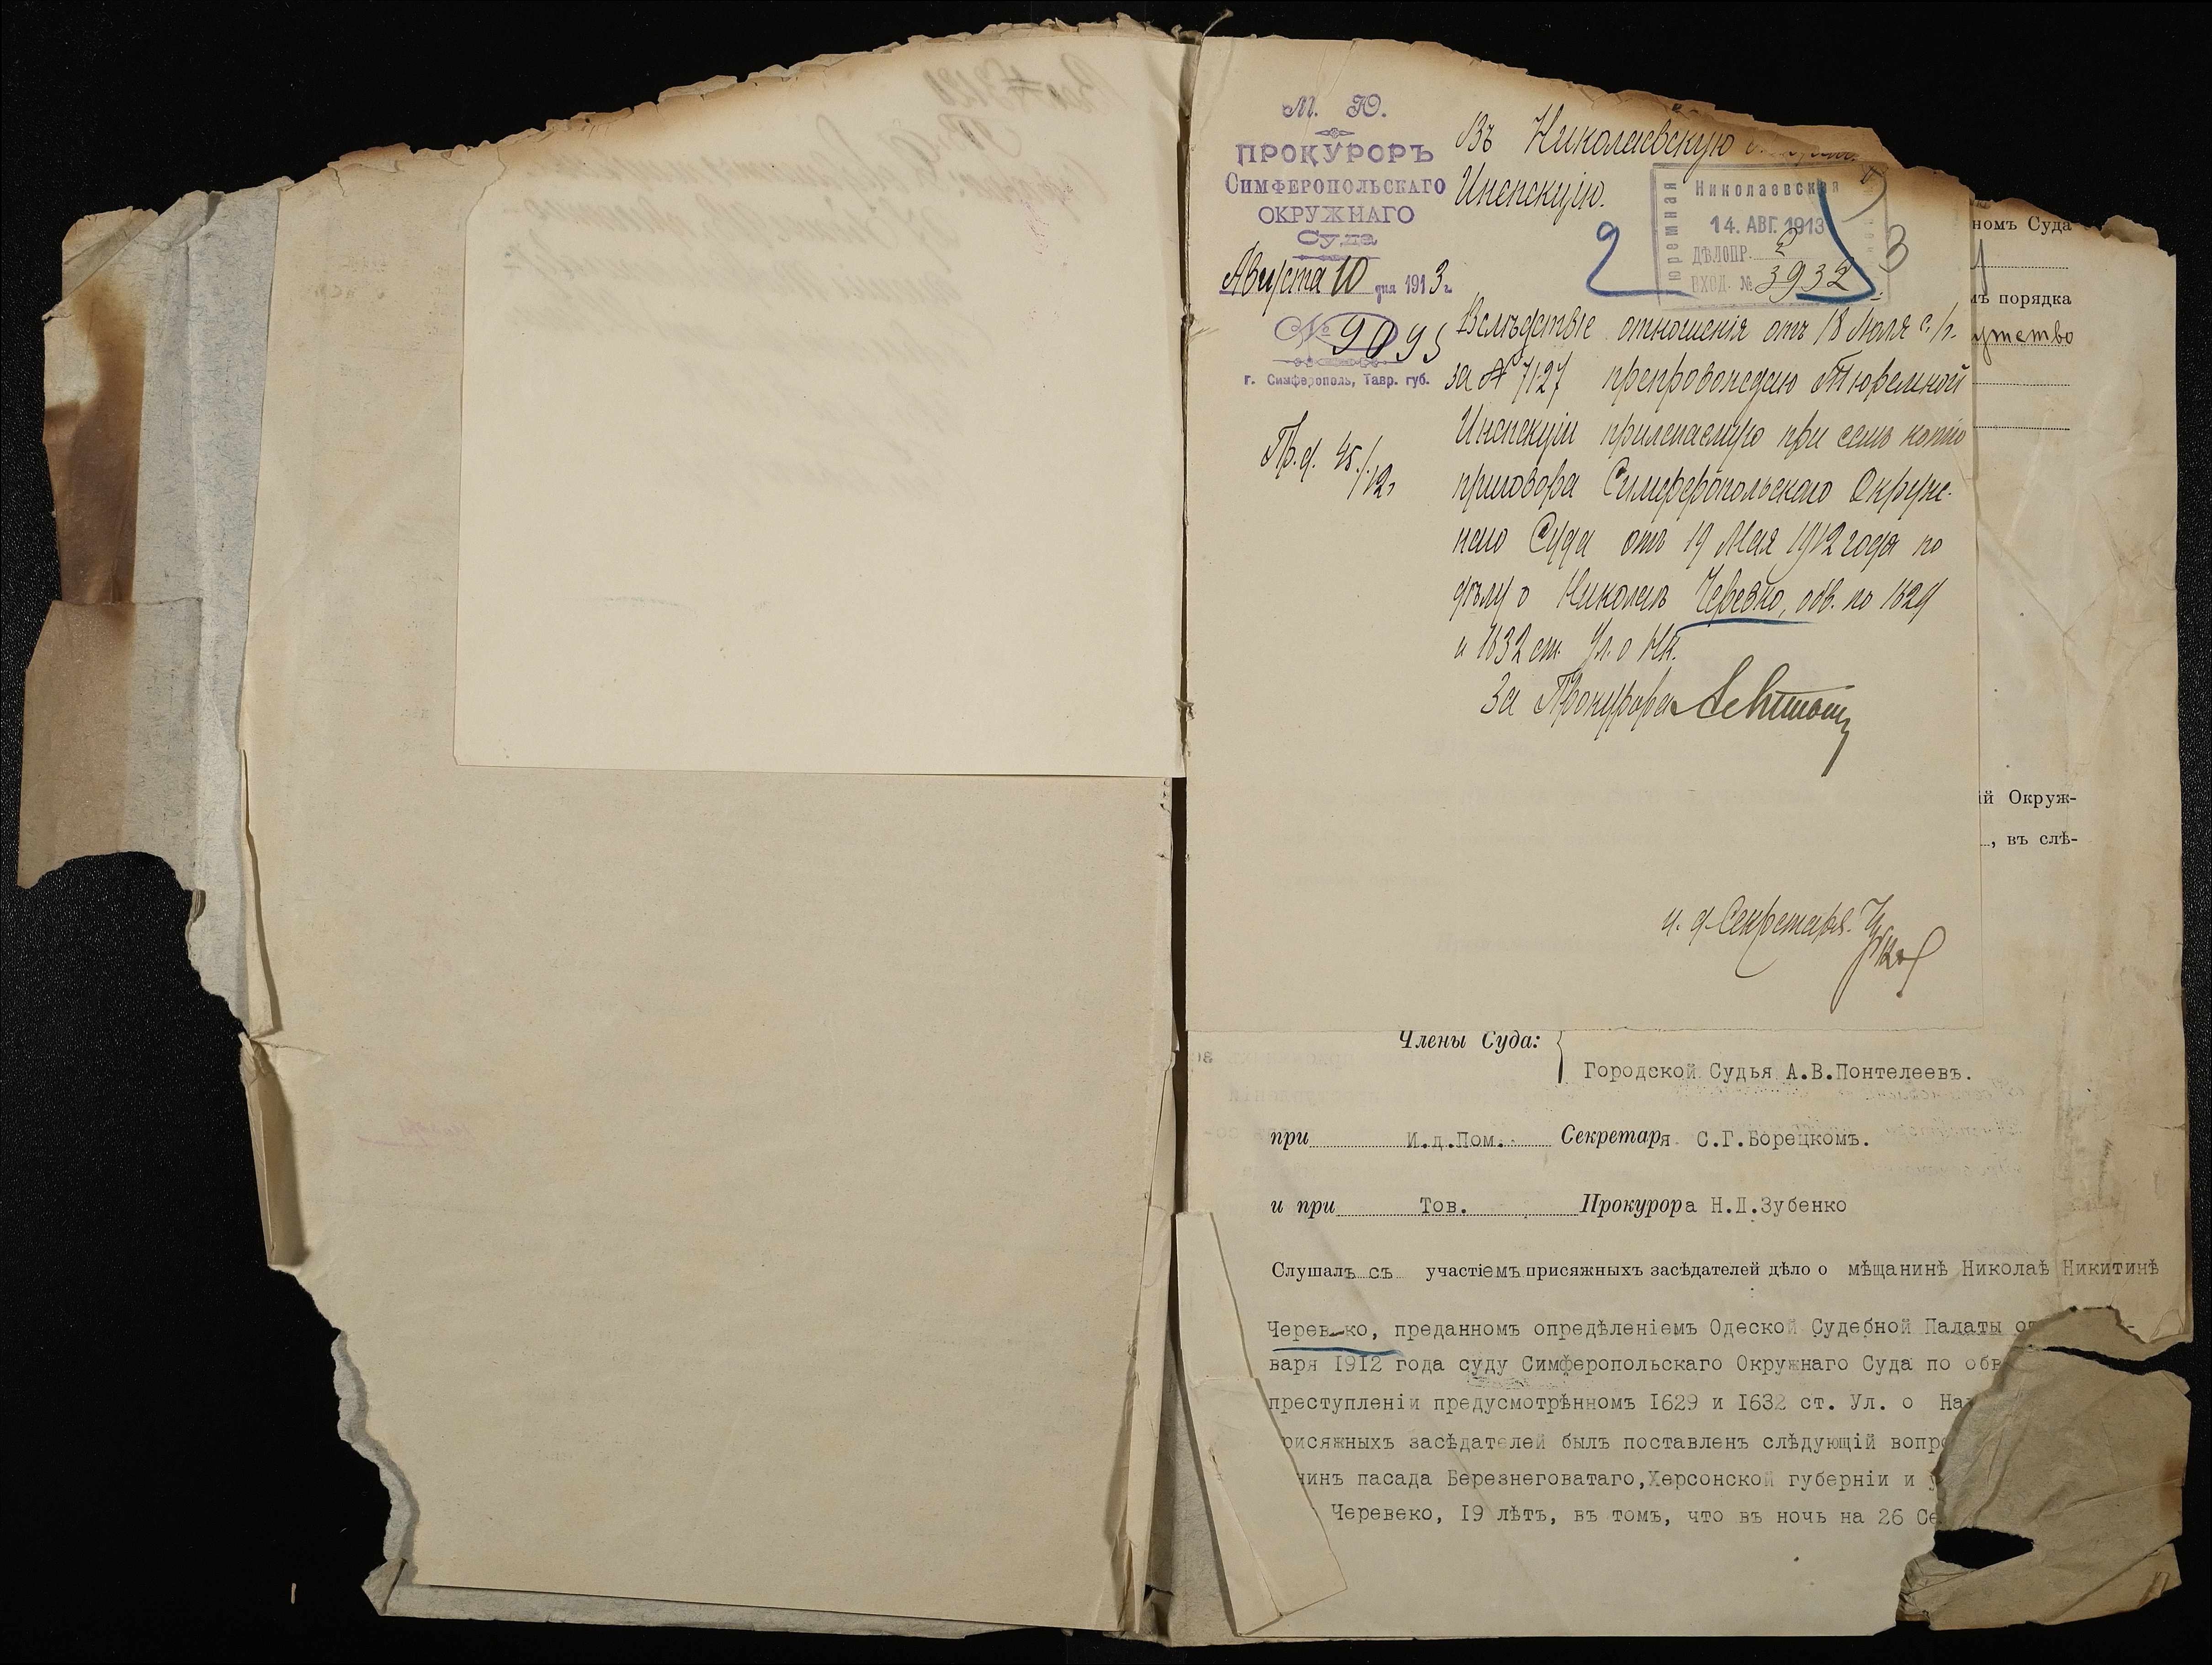 М. Ю.
ПРОКУРОРЪ
СИМФЕРОПОЛЬСКАГО
ОКРУЖНАГО
Суда
Августа 10 дня 1913 г.
№ 9095
г. Симферополь, Тавр. губ.
Пр. д. 45/12 г.
Въ Николаевскую
Инспекцію.
Николаевская
Тюремная
14. АВГ. 1913
ДѢЛОПР. 2
ВХОД. № 3932
2
3
Вслѣдствіе отношенія отъ 18 Іюля с./г.
за № 7127 препровождаю Тюремной
Инспекціи прилагаемую при семъ копію
приговора Симферопольскаго Окруж-
наго Суда отъ 19 Мая 1912 года по
дѣлу о Николаѣ Черевко, обв. по 1629
и 1632 ст. Ул. о Нк.
За Прокурора
и. д. Секретаря
номъ Суда
мъ порядка
ій Окруж-
, въ слѣ-
Члены Суда:
Городской Судья А.В.Понтелеевъ.
при И.д.Пом. Секретаря С.Г.Борецкомъ.
и при Тов. Прокурора Н.Д.Зубенко
Слушалъ съ участіемъ присяжныхъ засѣдателей дѣло о мѣщанинѣ Николаѣ Никитинѣ
Черев-ко, преданномъ опредѣленіемъ Одеской Судебной Палаты от
варя 1912 года суду Симферопольскаго Окружнаго Суда по обв
преступленіи предусмотрѣнномъ 1629 и 1632 ст. Ул. о На
рисяжныхъ засѣдателей былъ поставленъ слѣдующій вопро
нинъ пасада Березнеговатаго,Херсонской губерніи и у
Черевеко, 19 лѣтъ, въ томъ, что въ ночь на 26 Се